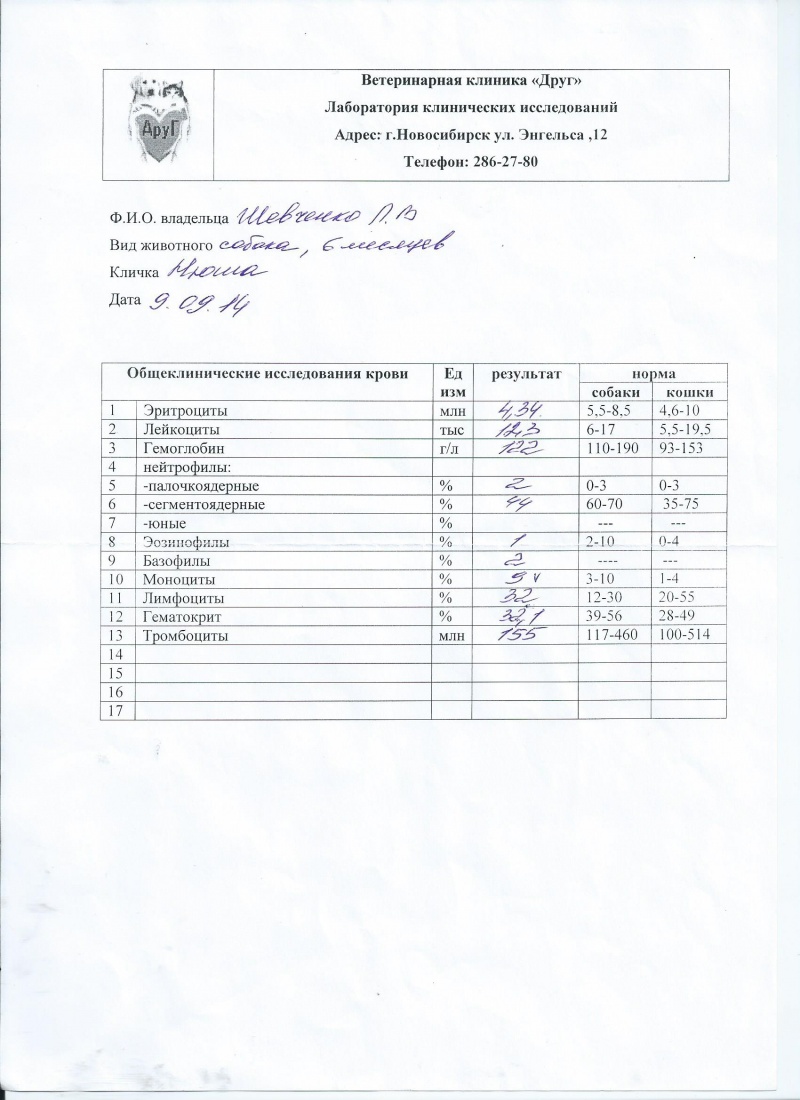 Друг
Ветеринарная клиника «Друг»
Лаборатория клинических исследований
Адрес: г.Новосибирск ул. Энгельса ,12
Телефон: 286-27-80
Ф.И.О. владельца Шевченко Л.В
Вид животного собака, 6 месяцев
Кличка Нюша
Дата 9.09.14
Общеклинические исследования крови Ед изм результат норма
собаки кошки
1 Эритроциты млн 4,34 5,5-8,5 4,6-10
2 Лейкоциты тыс 12,3 6-17 5,5-19,5
3 Гемоглобин г/л 122 110-190 93-153
4 нейтрофилы:
5 -палочкоядерные % 2 0-3 0-3
6 -сегментоядерные % 44 60-70 35-75
7 -юные % --- ---
8 Эозинофилы % 1 2-10 0-4
9 Базофилы % 2 ---- ---
10 Моноциты % 9 v 3-10 1-4
11 Лимфоциты % 32 12-30 20-55
12 Гематокрит % 32,1 39-56 28-49
13 Тромбоциты млн 155 117-460 100-514
14
15
16
17